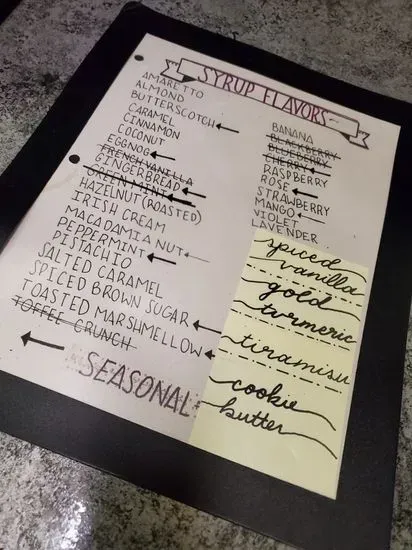 SYRUP FLAVORS
AMARETTO
ALMOND
BUTTERSCOTCH
CARAMEL
CINNAMON
COCONUT
EGGNOG
FRENCH VANILLA
GINGERBREAD
GREEN MINT
HAZELNUT (ROASTED)
IRISH CREAM
MACADAMIA NUT
PEPPERMINT
PISTACHIO
SALTED CARAMEL
SPICED BROWN SUGAR
TOASTED MARSHMELLOW
TOFFEE CRUNCH
SEASONAL
BANANA
BLACKBERRY
BLUEBERRY
CHERRY
RASPBERRY
ROSE
STRAWBERRY
MANGO
VIOLET
LAVENDER
spiced
vanilla
gold
turmeric
tiramisu
cookie
butter